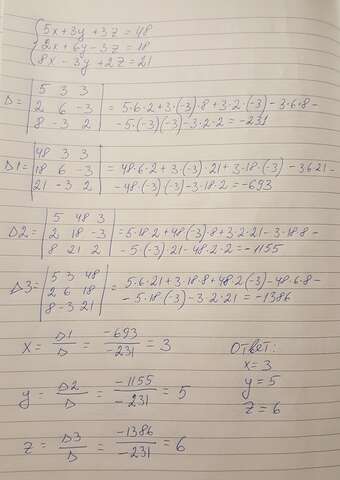 5x+3y+3z=48
2x+6y-3z=18
8x-3y+2z=21
5 3 3
Δ= 2 6 -3 =5·6·2+3·(-3)·8+3·2·(-3)-3·6·8-
8 -3 2 -5·(-3)·(-3)-3·2·2=-231
48 3 3
Δ1= 18 6 -3 =48·6·2+3·(-3)·21+3·18·(-3)-3·6·21-
21 -3 2 -48·(-3)·(-3)-3·18·2=-693
5 48 3
Δ2= 2 18 -3 =5·18·2+48·(-3)·8+3·2·21-3·18·8-
8 21 2 -5·(-3)·21-48·2·2=-1155
5 3 48
Δ3= 2 6 18 =5·6·21+3·18·8+48·2·(-3)-48·6·8-
8 -3 21 -5·18·(-3)-3·2·21=-1386
x= Δ1/Δ = -693/-231 =3
y= Δ2/Δ = -1155/-231 =5
z= Δ3/Δ = -1386/-231 =6
Ответ:
x=3
y=5
z=6